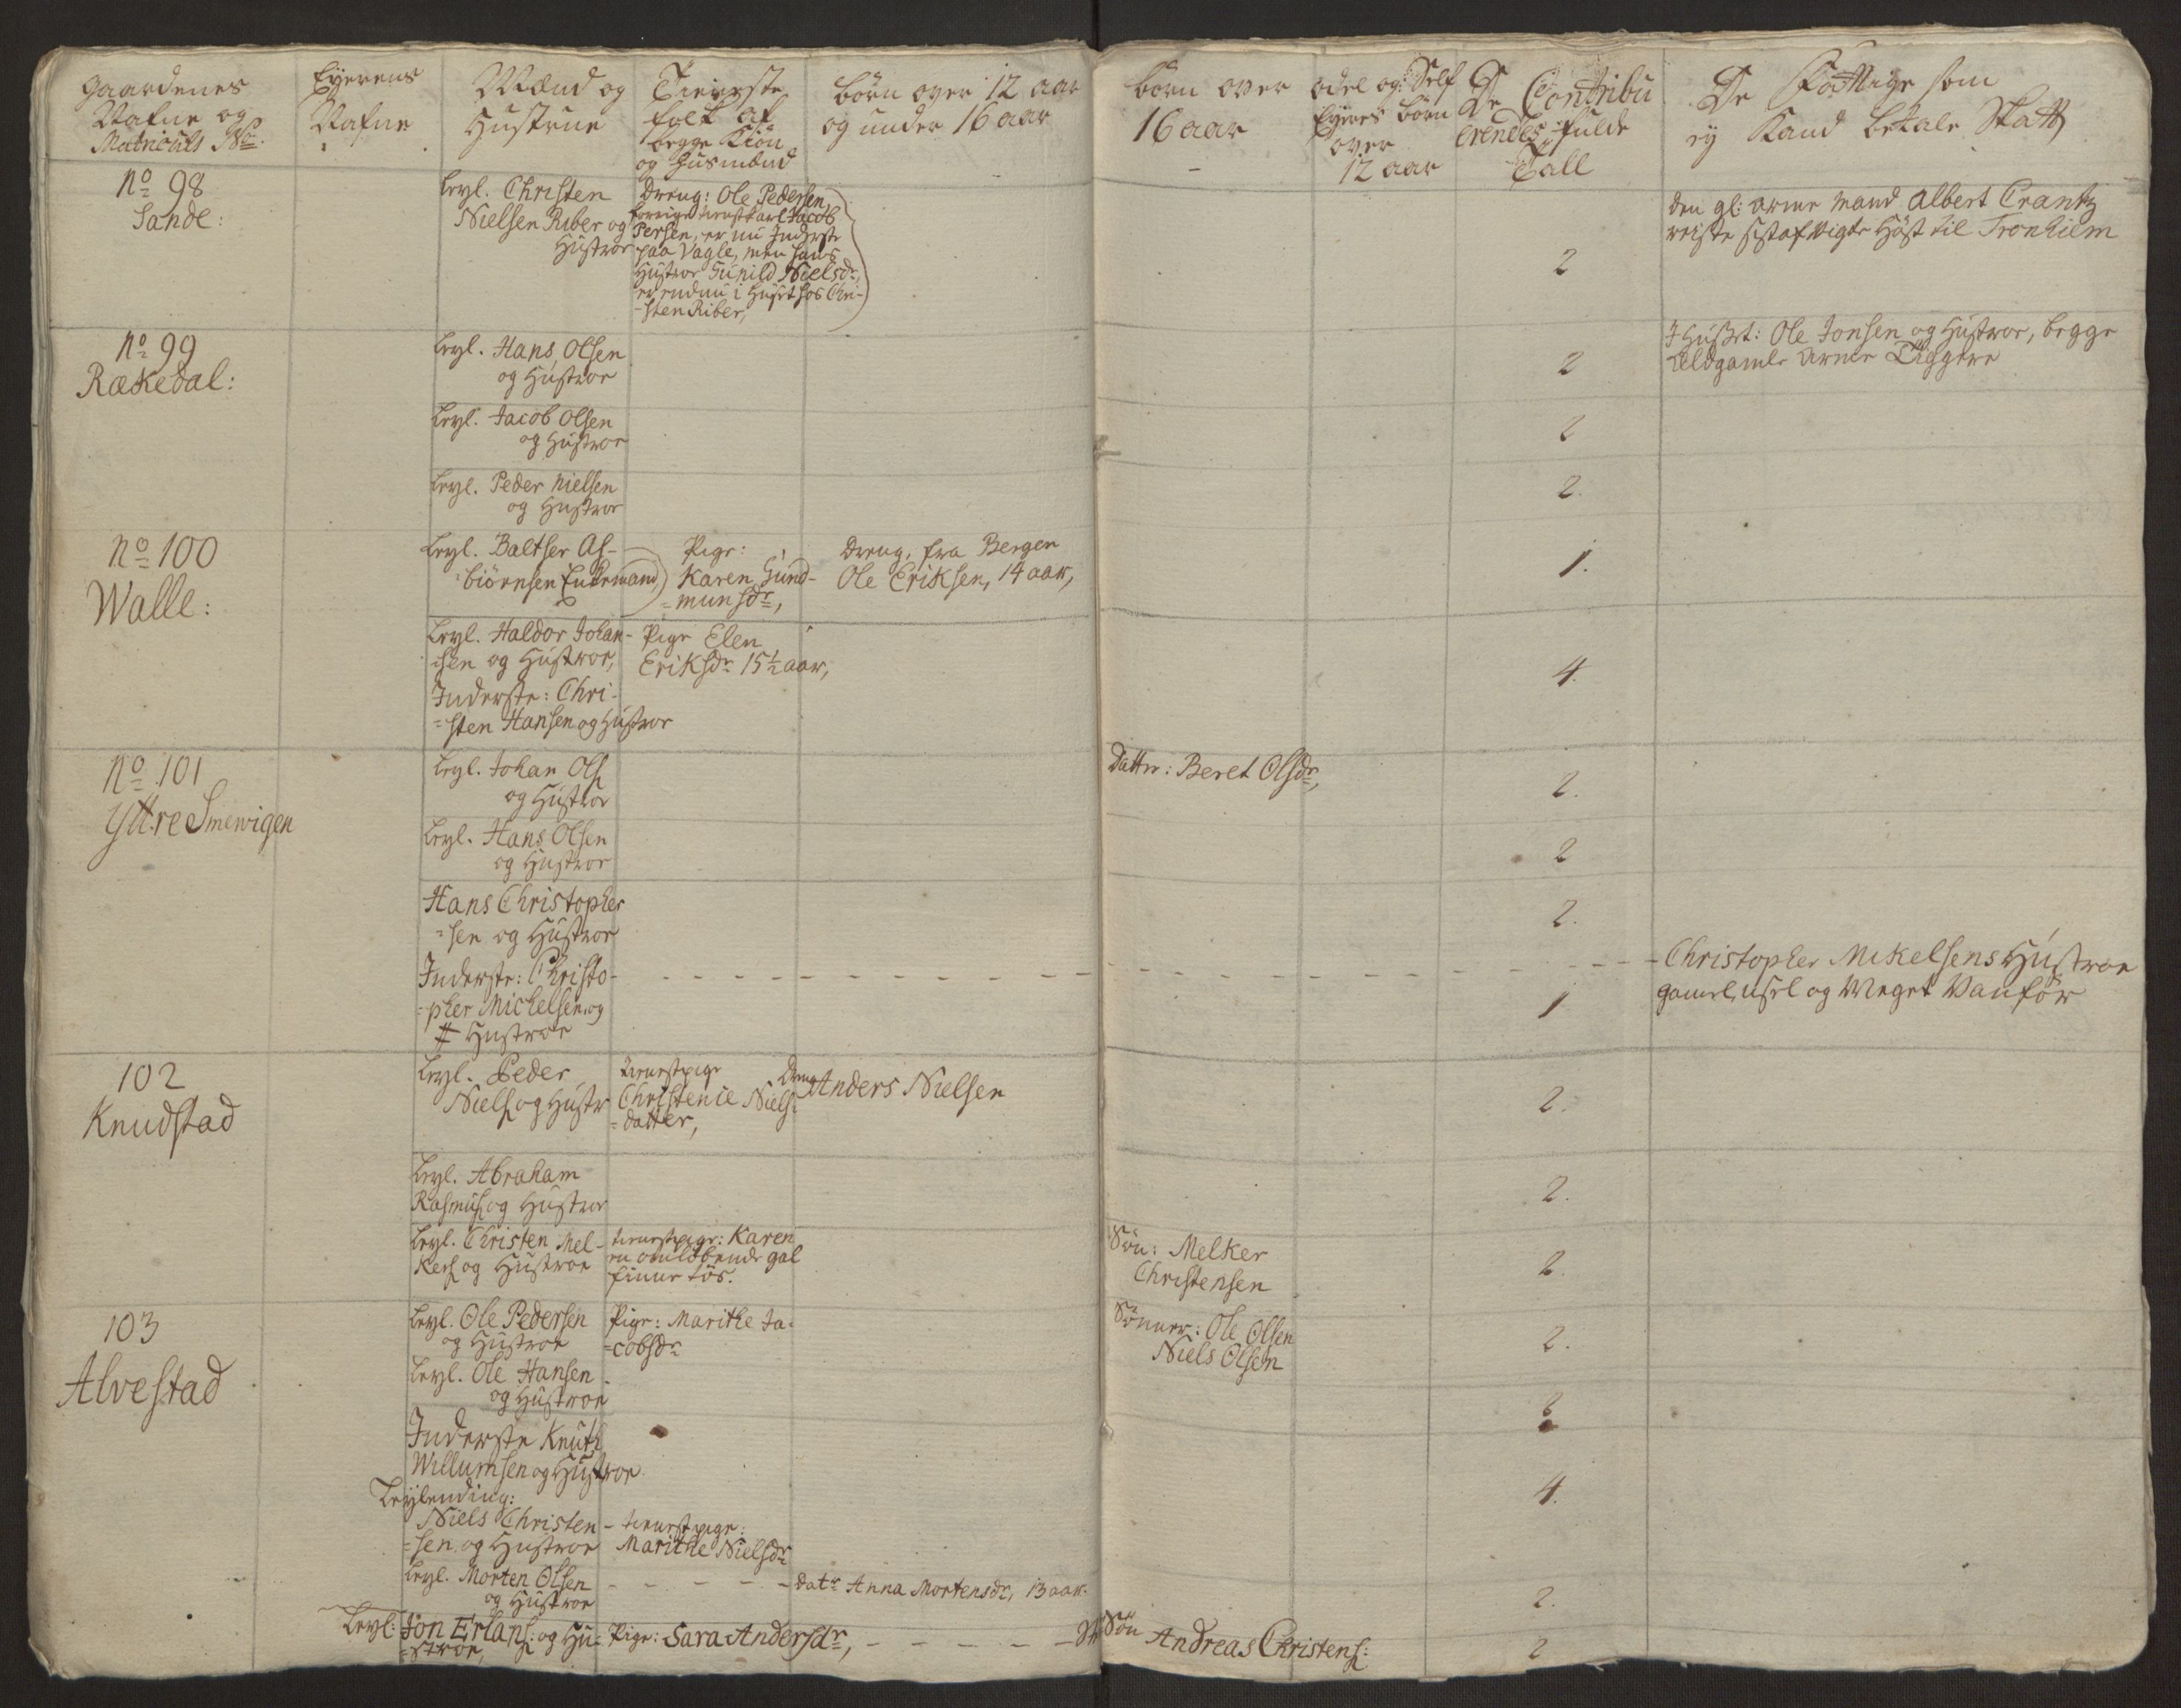 Gaardenes
Nafne og
Matriculs No:
Eyerens
Nafne
Mænd og
Hustrue
Tieneste
folk af
begge Kiøn
og Husmænd
børn over 12 aar
og under 16 aar
børn over
16 aar
odel og Self
Eyeres børn
over
12 aar
De Contribu
erendes fulde
Tall
De Fattige som
ey Kand betale Skatt
No 98
Sande:
Leyl. Christen
Nielsen Riber og
Hustroe
Dreng: Ole Pedersen
forrige tienstkarl Jacob
Persen, er nu Inderste
paa Vagle, men hans
Hustroe Gunild Nielsdr,
er endnu i Huset hos Chri-
-sten Riber,
2
den gl: arme mand Albert Crantz
reiste sist afvigte Høst til Tronhiem
No 99
Rækedal:
Leyl. Hans Olsen
og Hustroe
2
I Huset: Ole Jonsen og Hustroe, begge
Ældgamle arme Tiggere
Leyl. Jacob Olsen
og Hustroe
2
Leyl. Peder Nielsen
og Hustroe
2.
No 100
Walle:
Leyl. Baltser As-
biørnsen Enkemand,
Pige:
Karen Gund-
=munsdr,
Dreng, fra Bergen
Ole Eriksen, 14 aar,
1.
Leyl. Haldor Johan-
sen og Hustroe,
Pige Elen
Eriksdr 15½ aar,
Inderste: Chri-
=sten Hansen og Hustroe
4.
No 101
Yttre Smevigen
Leyl. Johan Ols
og Hustroe
Datter: Beret Olsdr,
2.
Leyl. Hans Olsen
og Hustroe
2
Hans Christopher
=sen og Hustroe
2.
Inderste: Christo-
=pher Michelsen og
Hustroe
1
Christopher Mikelsens Hustroe
gamel, usel og Meget Vanfør
102
Knudstad
Leyl. Peder
Niels og Hustr
tienestpige
Christenie Niels
=datter,
Dreng Anders Nielsen
2.
Leyl. Abraham
Rasmus og Hustroe
2.
Leyl. Christen Mel-
kers og Hustroe
tienestpige: Karen
en omløbende gal
finne tøs.
Søn: Melker
Christensen
2.
103
Alvestad
Leyl. Ole Pedersen
og Hustroe
Pige: Marithe Ja-
=cobsdr
Sønner: Ole Olsen
Niels Olsen
2.
Leyl. Ole Hansen
og Hustroe
Inderste Knuth
Willumsen og Hustroe
4.
Leylending:
Niels Christen
=sen og Hustroe
tienestpige:
Marithe Nielsdr
Leyl. Morten Olsen
og Hustroe
Datr Anna Mortensdr, 13 aar.
2.
Leyl: Jon Erlans: og Hu-
=stroe,
Pige: Sara Andersdr,
Søn
Andreas Christens:
2